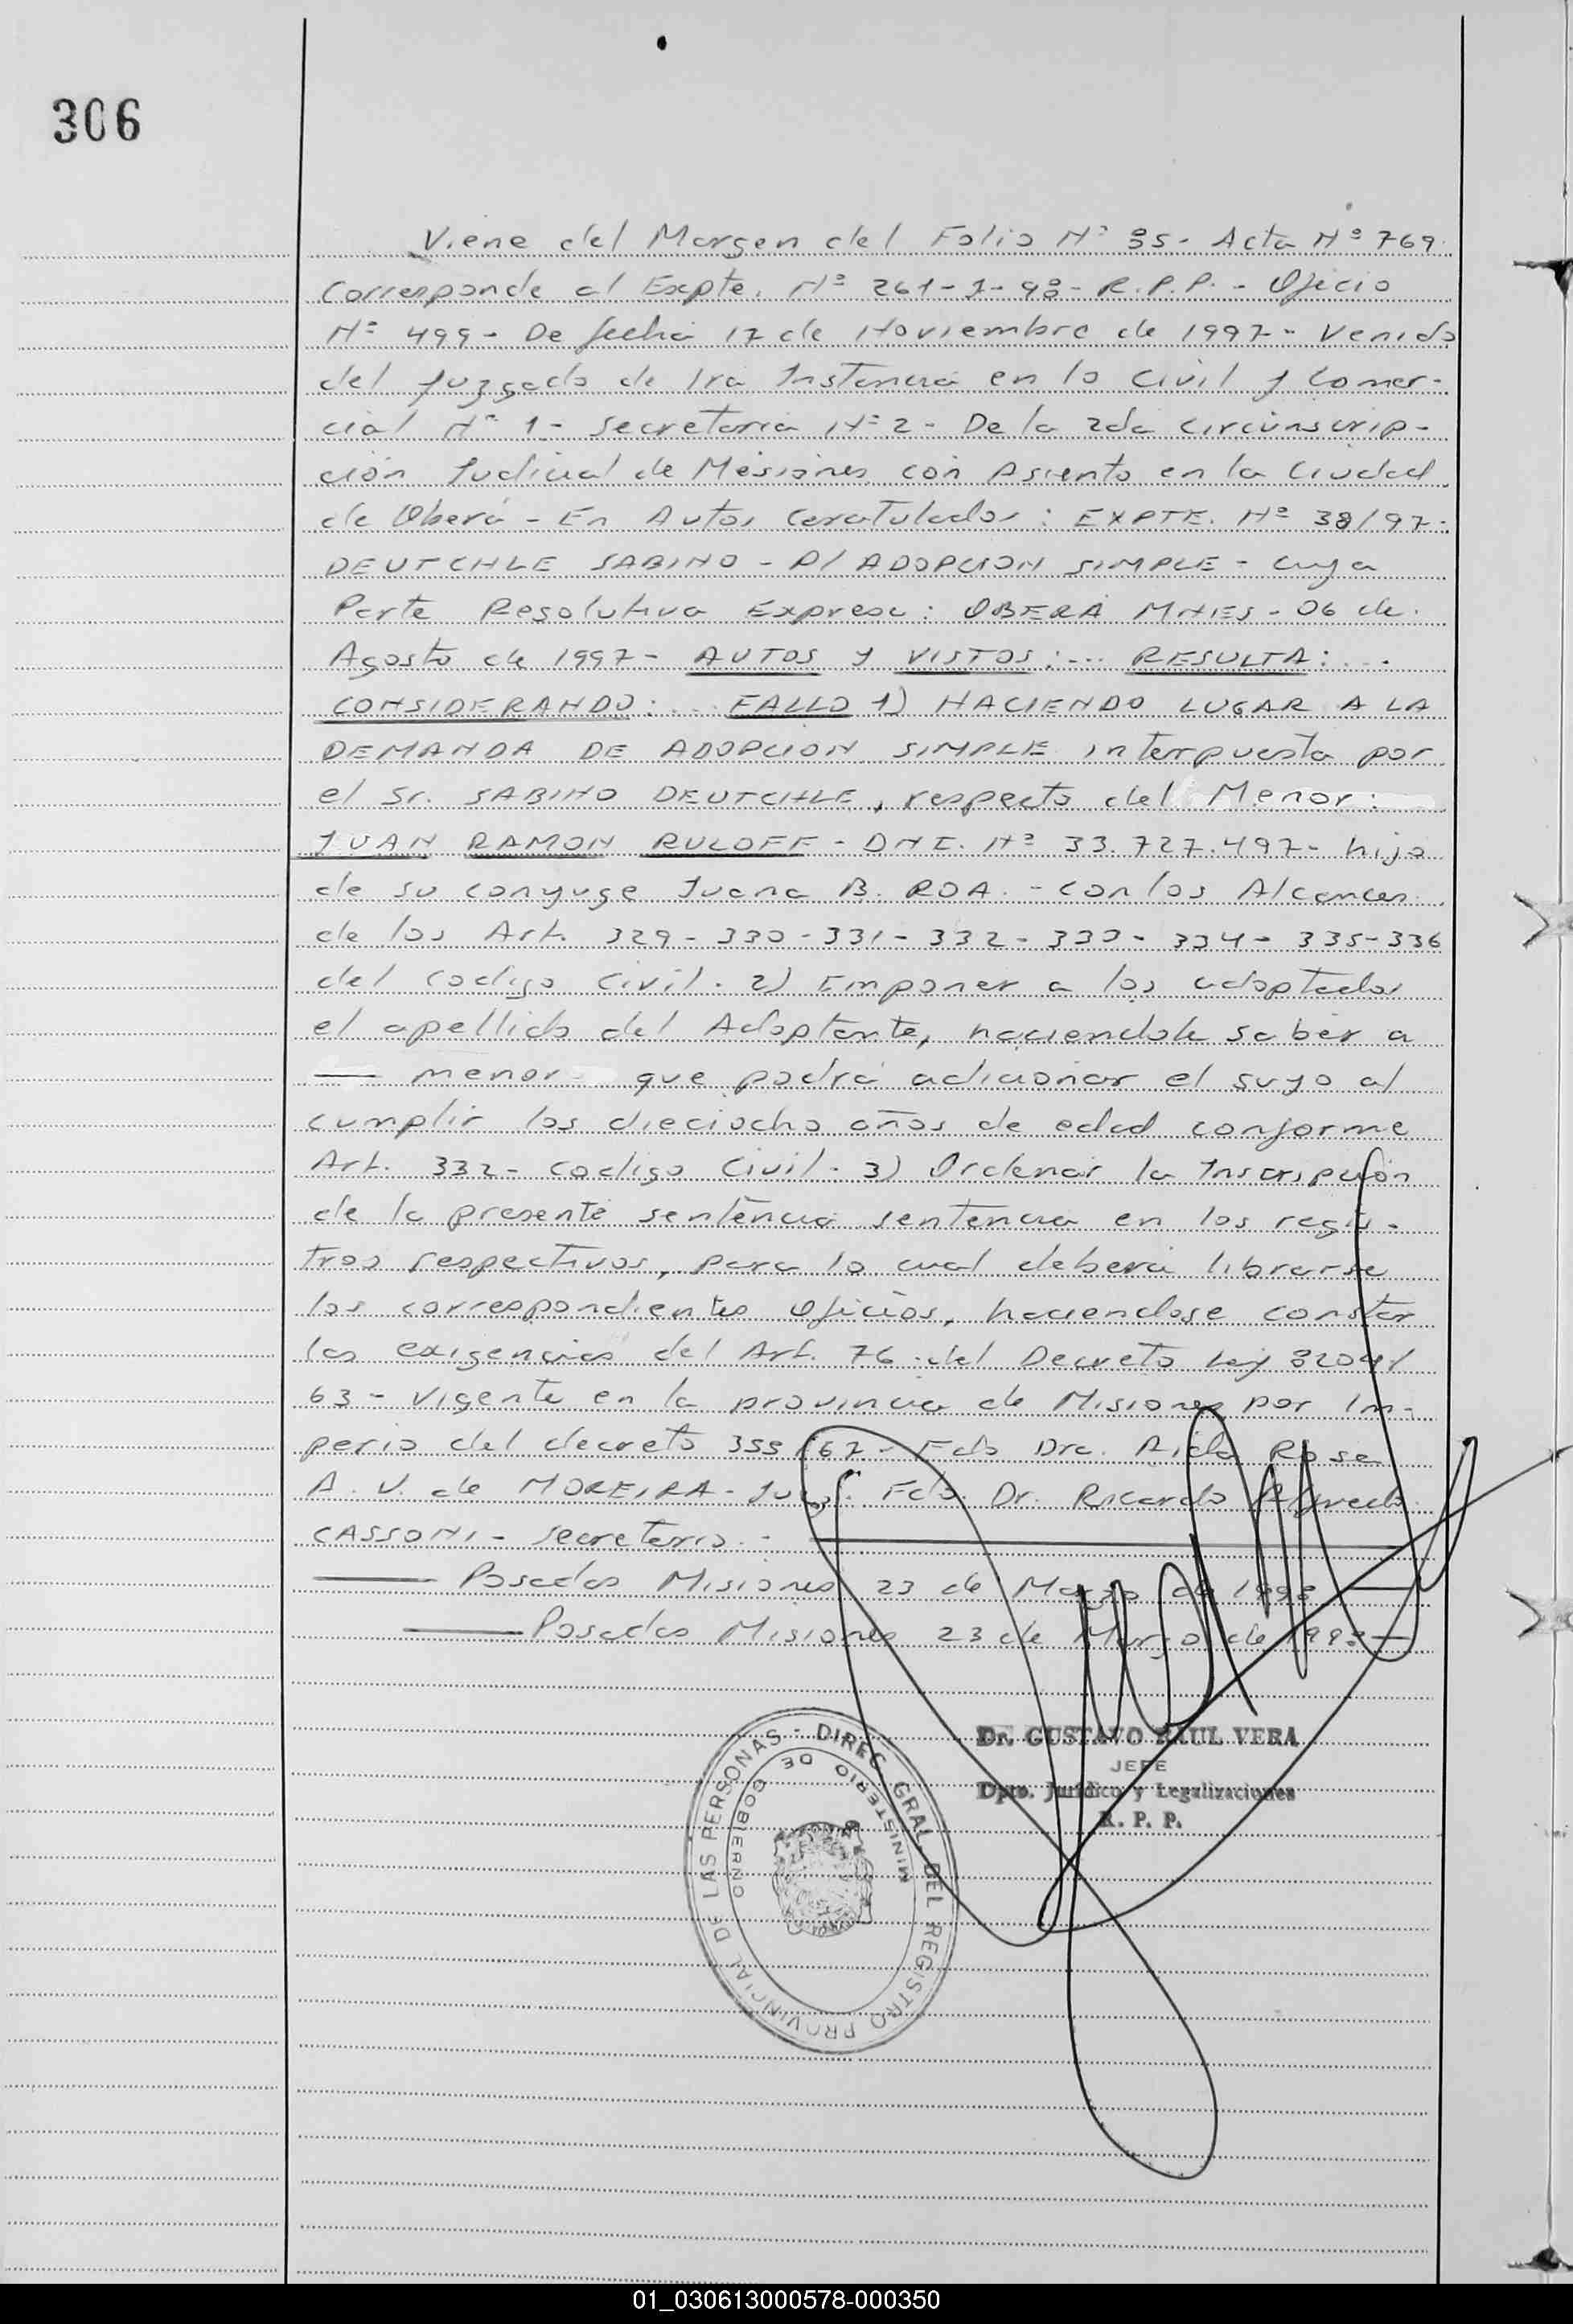 306
Viene del Margen del Folio Nº 85- Acta Nº 769.
Corresponde al Expte. Nº 261-J-98- R.P.P. - Oficio
Nº 499- De fecha 17 de Noviembre de 1997- Venido
del Juzgado de 1ra Instancia en lo Civil y Comer-
cial Nº 1- Secretaria Nº 2- De la 2da Circunscrip-
ción Judicial de Misiones con Asiento en la Ciudad
de Oberá - En Autos Caratulados: EXPTE. Nº 38/97-
DEUTCHLE SABINO - P/ ADOPCION SIMPLE - Cuya
Parte Resolutiva Expresa: OBERA MNES- 06 de
Agosto de 1997- AUTOS Y VISTOS:... RESULTA:...
CONSIDERANDO:... FALLO 1) HACIENDO LUGAR A LA
DEMANDA DE ADOPCION SIMPLE interpuesta por
el Sr. SABINO DEUTCHLE, respecto del Menor:
JUAN RAMON RULOFF - DNI. Nº 33.727.497- hijo
de su conyuge Juana B. ROA. - con los Alcances
de los Art. 329- 330- 331- 332- 333- 334- 335-336
del Codigo Civil. 2) Imponer a los adoptados
el apellido del Adoptante, haciendole saber a
— menor- que podrá adicionar el suyo al
cumplir los dieciocho años de edad conforme
Art. 332- Codigo Civil. 3) Ordenar la Inscripción
de la presente sentencia sentencia en los regis-
tros respectivos, para lo cual deberá librarse
los correspondientes Oficios, haciendose constar
las exigencias del Art. 76 del Decreto Ley 8204/
63- Vigente en la provincia de Misiones por Im-
perio del decreto 355/67- Fdo Dra. Aida Rosa
A. V. de MOREIRA- Juez. Fdo. Dr. Ricardo Alfredo
CASSONI- Secretario.-
— Posadas Misiones 23 de Marzo de 1998 —
— Posadas Misiones 23 de Marzo de 1998 —
Dr. GUSTAVO RAUL VERA
JEFE
Dpto. Jurídico y Legalizaciones
R. P. P.
DIREC. GRAL. DEL REGISTRO PROVINCIAL DE LAS PERSONAS -
MINISTERIO DE GOBIERNO
01_030613000578-000350